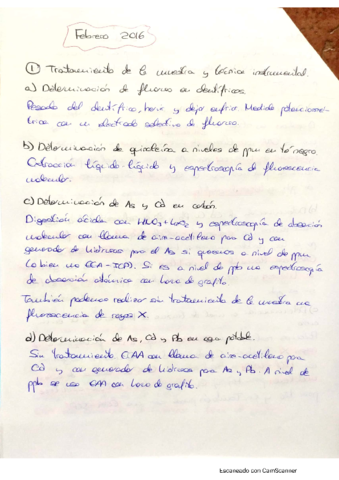 Febrero 2016
① Tratamiento de la muestra y técnica instrumental.
a) Determinación de fluoruro en dentífricos.
Pesado del dentífrico, hervir y dejar enfriar. Medida potenciomé-
trica con un electrodo selectivo de fluoruro.
b) Determinación de a niveles de ppm en té negro.
Extracción líquido-líquido y espectroscopía de fluorescencia
molecular.
c) Determinación de As y Cd en
Digestión ácida con HNO₃ + H₂O₂ y espectroscopía de absorción
molecular con llama de aire-acetileno para Cd y con
generador de hidruros para el As si queremos a nivel de ppm
(o bien una ICP). Si es a nivel de ppb una espectroscopía
de absorción atómica con horno de grafito.
También podemos realizar sin tratamiento de la muestra una
fluorescencia de rayos X.
d) Determinación de As, Cd y Pb en agua potable.
Sin tratamiento. EAA con llama de aire-acetileno para
Cd y con generador de hidruros para As y Pb. A nivel de
ppb se usa EAA con horno de grafito.
Escaneado con CamScanner